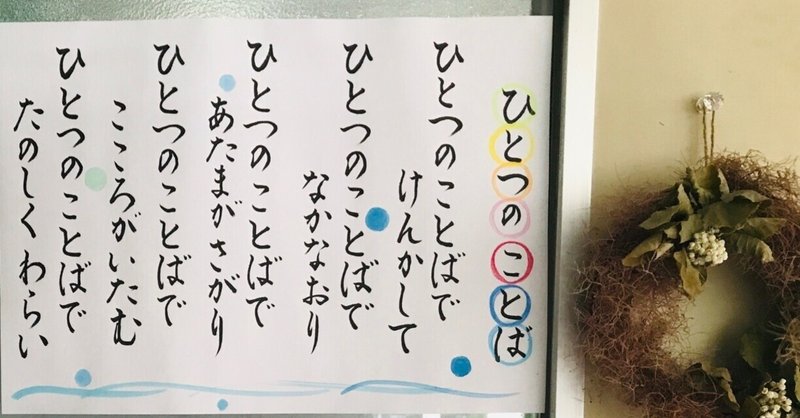 ひとつのことば
ひとつのことばで
けんかして
ひとつのことばで
なかなおり
ひとつのことばで
あたまがさがり
ひとつのことばで
こころがいたむ
ひとつのことばで
たのしくわらい